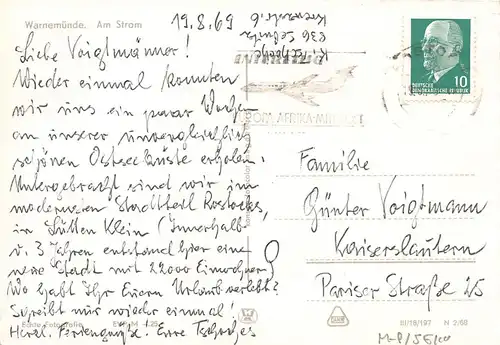 Warnemünde. Am Strom
19.8.69
836 Sebnitz
Liebe Voigtmänner!
Wieder einmal konnten
wir uns ein paar Wochen
an unserer unvergleichlich
schönen Ostseeküste erholen.
Untergebracht sind wir im
modernsten Stadtteil Rostocks,
in Lütten Klein (Innerhalb
v. 3 Jahren entstand hier eine
neue Stadt mit 22000 Einwohnern)
Wo habt Ihr Euern Urlaub verlebt?
Schreibt mir wieder einmal!
Herzl. Feriengrüße. Eure
INTERFLUG
EUROPA AFRIKA-MITTELOST
DEUTSCHE
DEMOKRATISCHE REPUBLIK
10
Familie
Günter Voigtmann
Kaiserslautern
Pariser Straße 25
Echte Fotografie
EVP M -,25
III/18/197 N 2/68